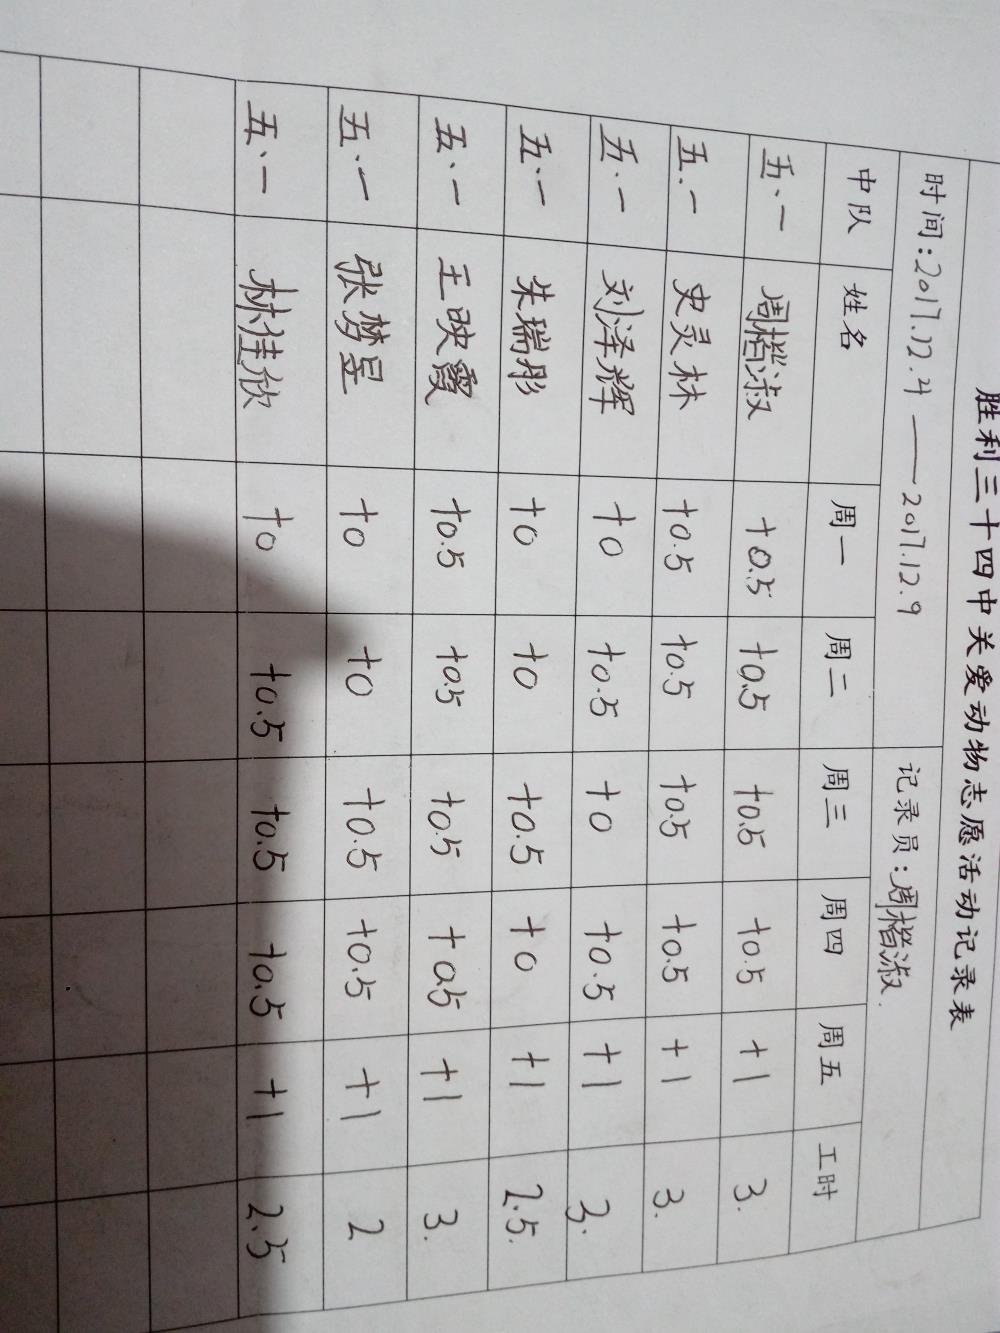 胜利三十四中关爱动物志愿活动记录表
时间:2017.12.4——2017.12.9 记录员:周楷淑.
中队 姓名 周一 周二 周三 周四 周五 工时
五.一 周楷淑 +0.5 +0.5 +0.5 +0.5 +1 3.
五.一 史灵林 +0.5 +0.5 +0.5 +0.5 +1 3.
五.一 刘泽辉 +0 +0.5 +0 +0.5 +1 3.
五.一 朱瑞彤 +0 +0 +0.5 +0 +1 2.5.
五、一 王映霞 +0.5 +0.5 +0.5 +0.5 +1 3.
五、一 张梦星 +0 +0 +0.5 +0.5 +1 2
五、一 林佳欣 +0 +0.5 +0.5 +0.5 +1 2.5